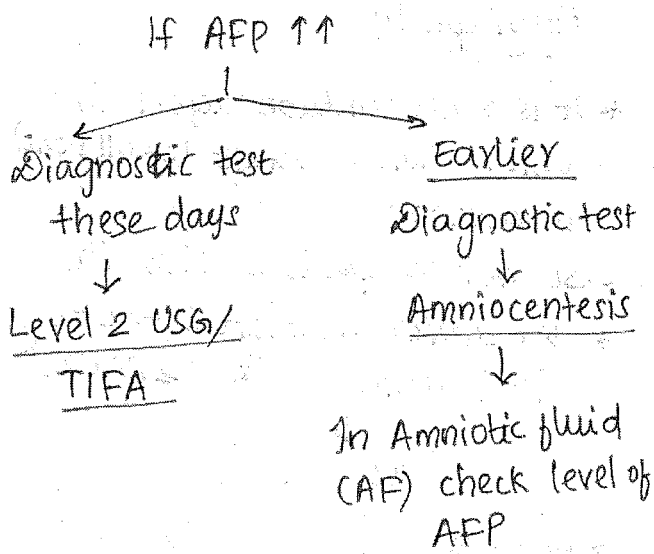 If AFP ↑↑
Diagnostic test
these days
↓
Level 2 USG/
TIFA
Earlier
Diagnostic test
↓
Amniocentesis
↓
In Amniotic fluid
(AF) check level of
AFP